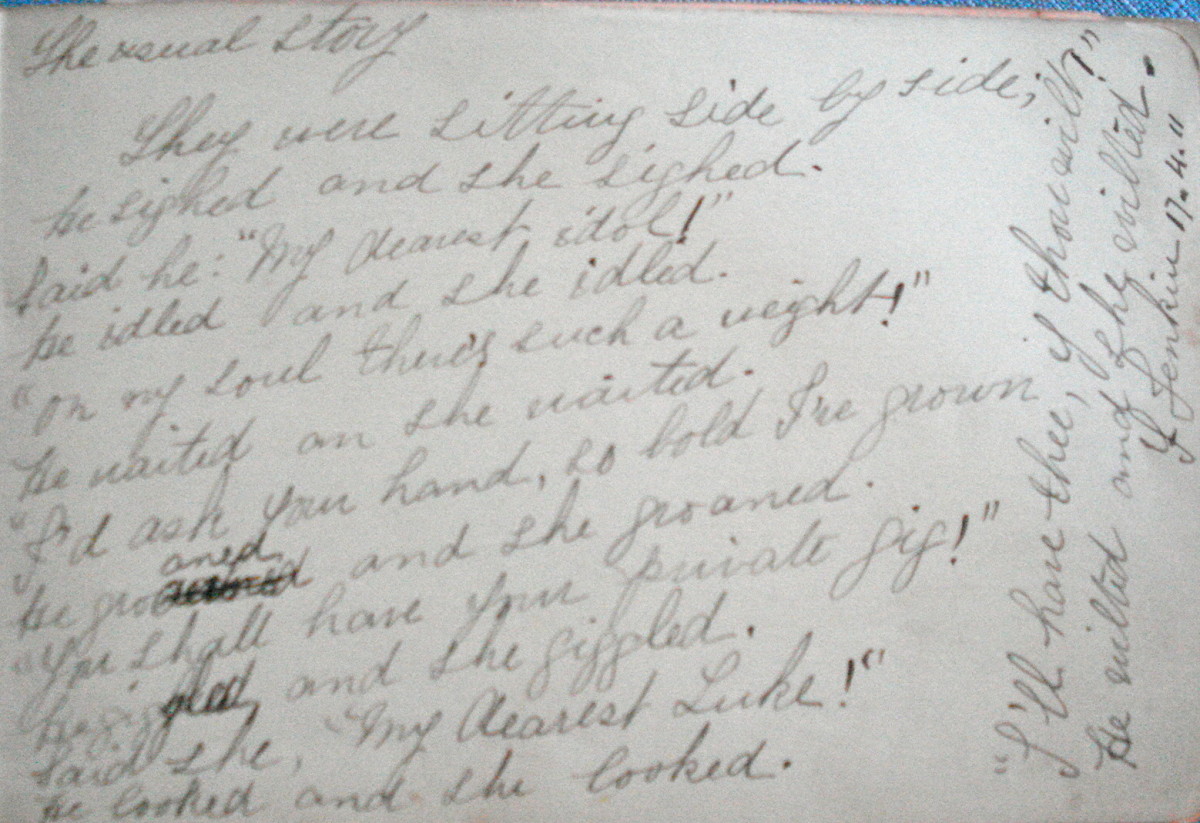 The usual story
They were sitting side by side;
he sighed and she sighed.
Said he: "My dearest idol!"
he idled and she idled.
"On my soul there's such a weight!"
He waited an she waited.
"I'd ask your hand, so bold I've grown
aned
He gro and she groaned.
"You shall have your private gig!"
he giggled and she giggled.
Said she, "My dearest Luke!"
He looked and she looked.
"I'll have thee, if thou wilt!"
He wilted and she wilted.
Jenkin 17.4.11